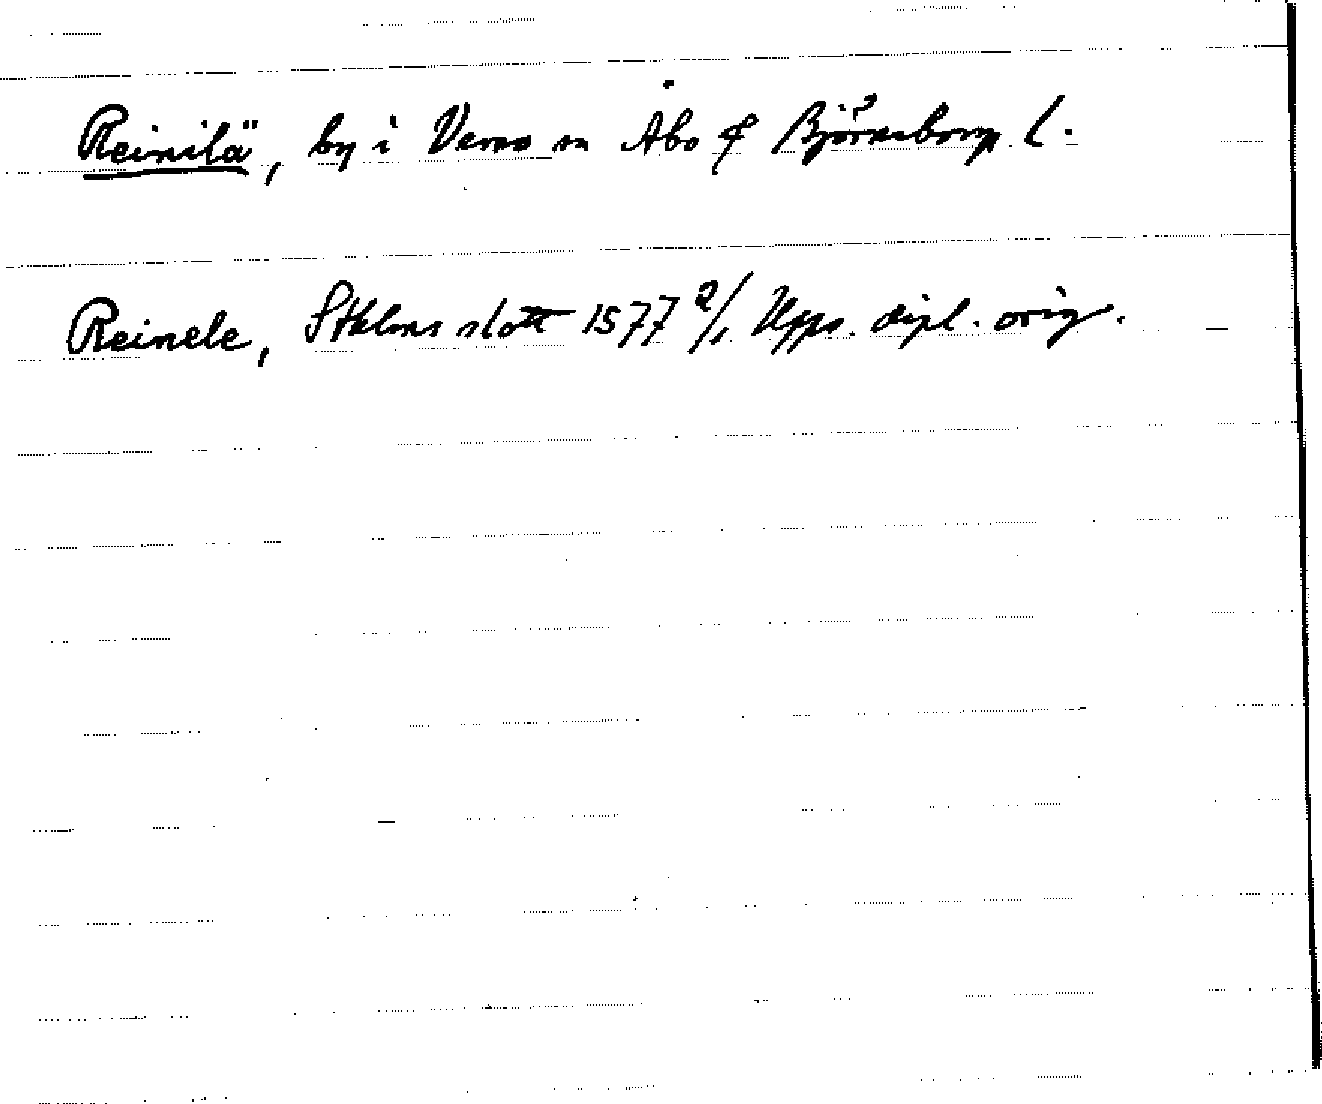 Reinilä, by i Vemo sn Åbo & Björneborgs l.
Reinele, Sthlms slott 1577 2/1 Upps. dipl. orig.